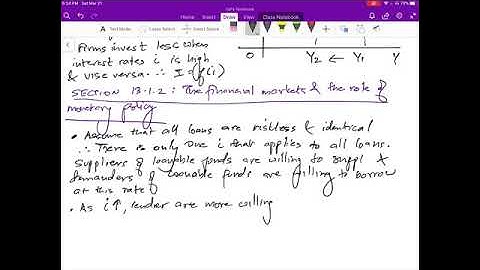 Firms invest less when
interest rates i is high
& vise versa. ∴ I = f(i)
Y2 ← Y1 Y
SECTION 13.1.2: The financial markets & the role of
monetary policy
• Assume that all loans are riskless & identical
∴ There is only one i that applies to all loans.
Suppliers of loanable funds are willing to suppl &
demanders of loanable funds are willing to borrow
at this rate of
• As i↑, lender are more willing
File
Home
Insert
Draw
View
Class Notebook